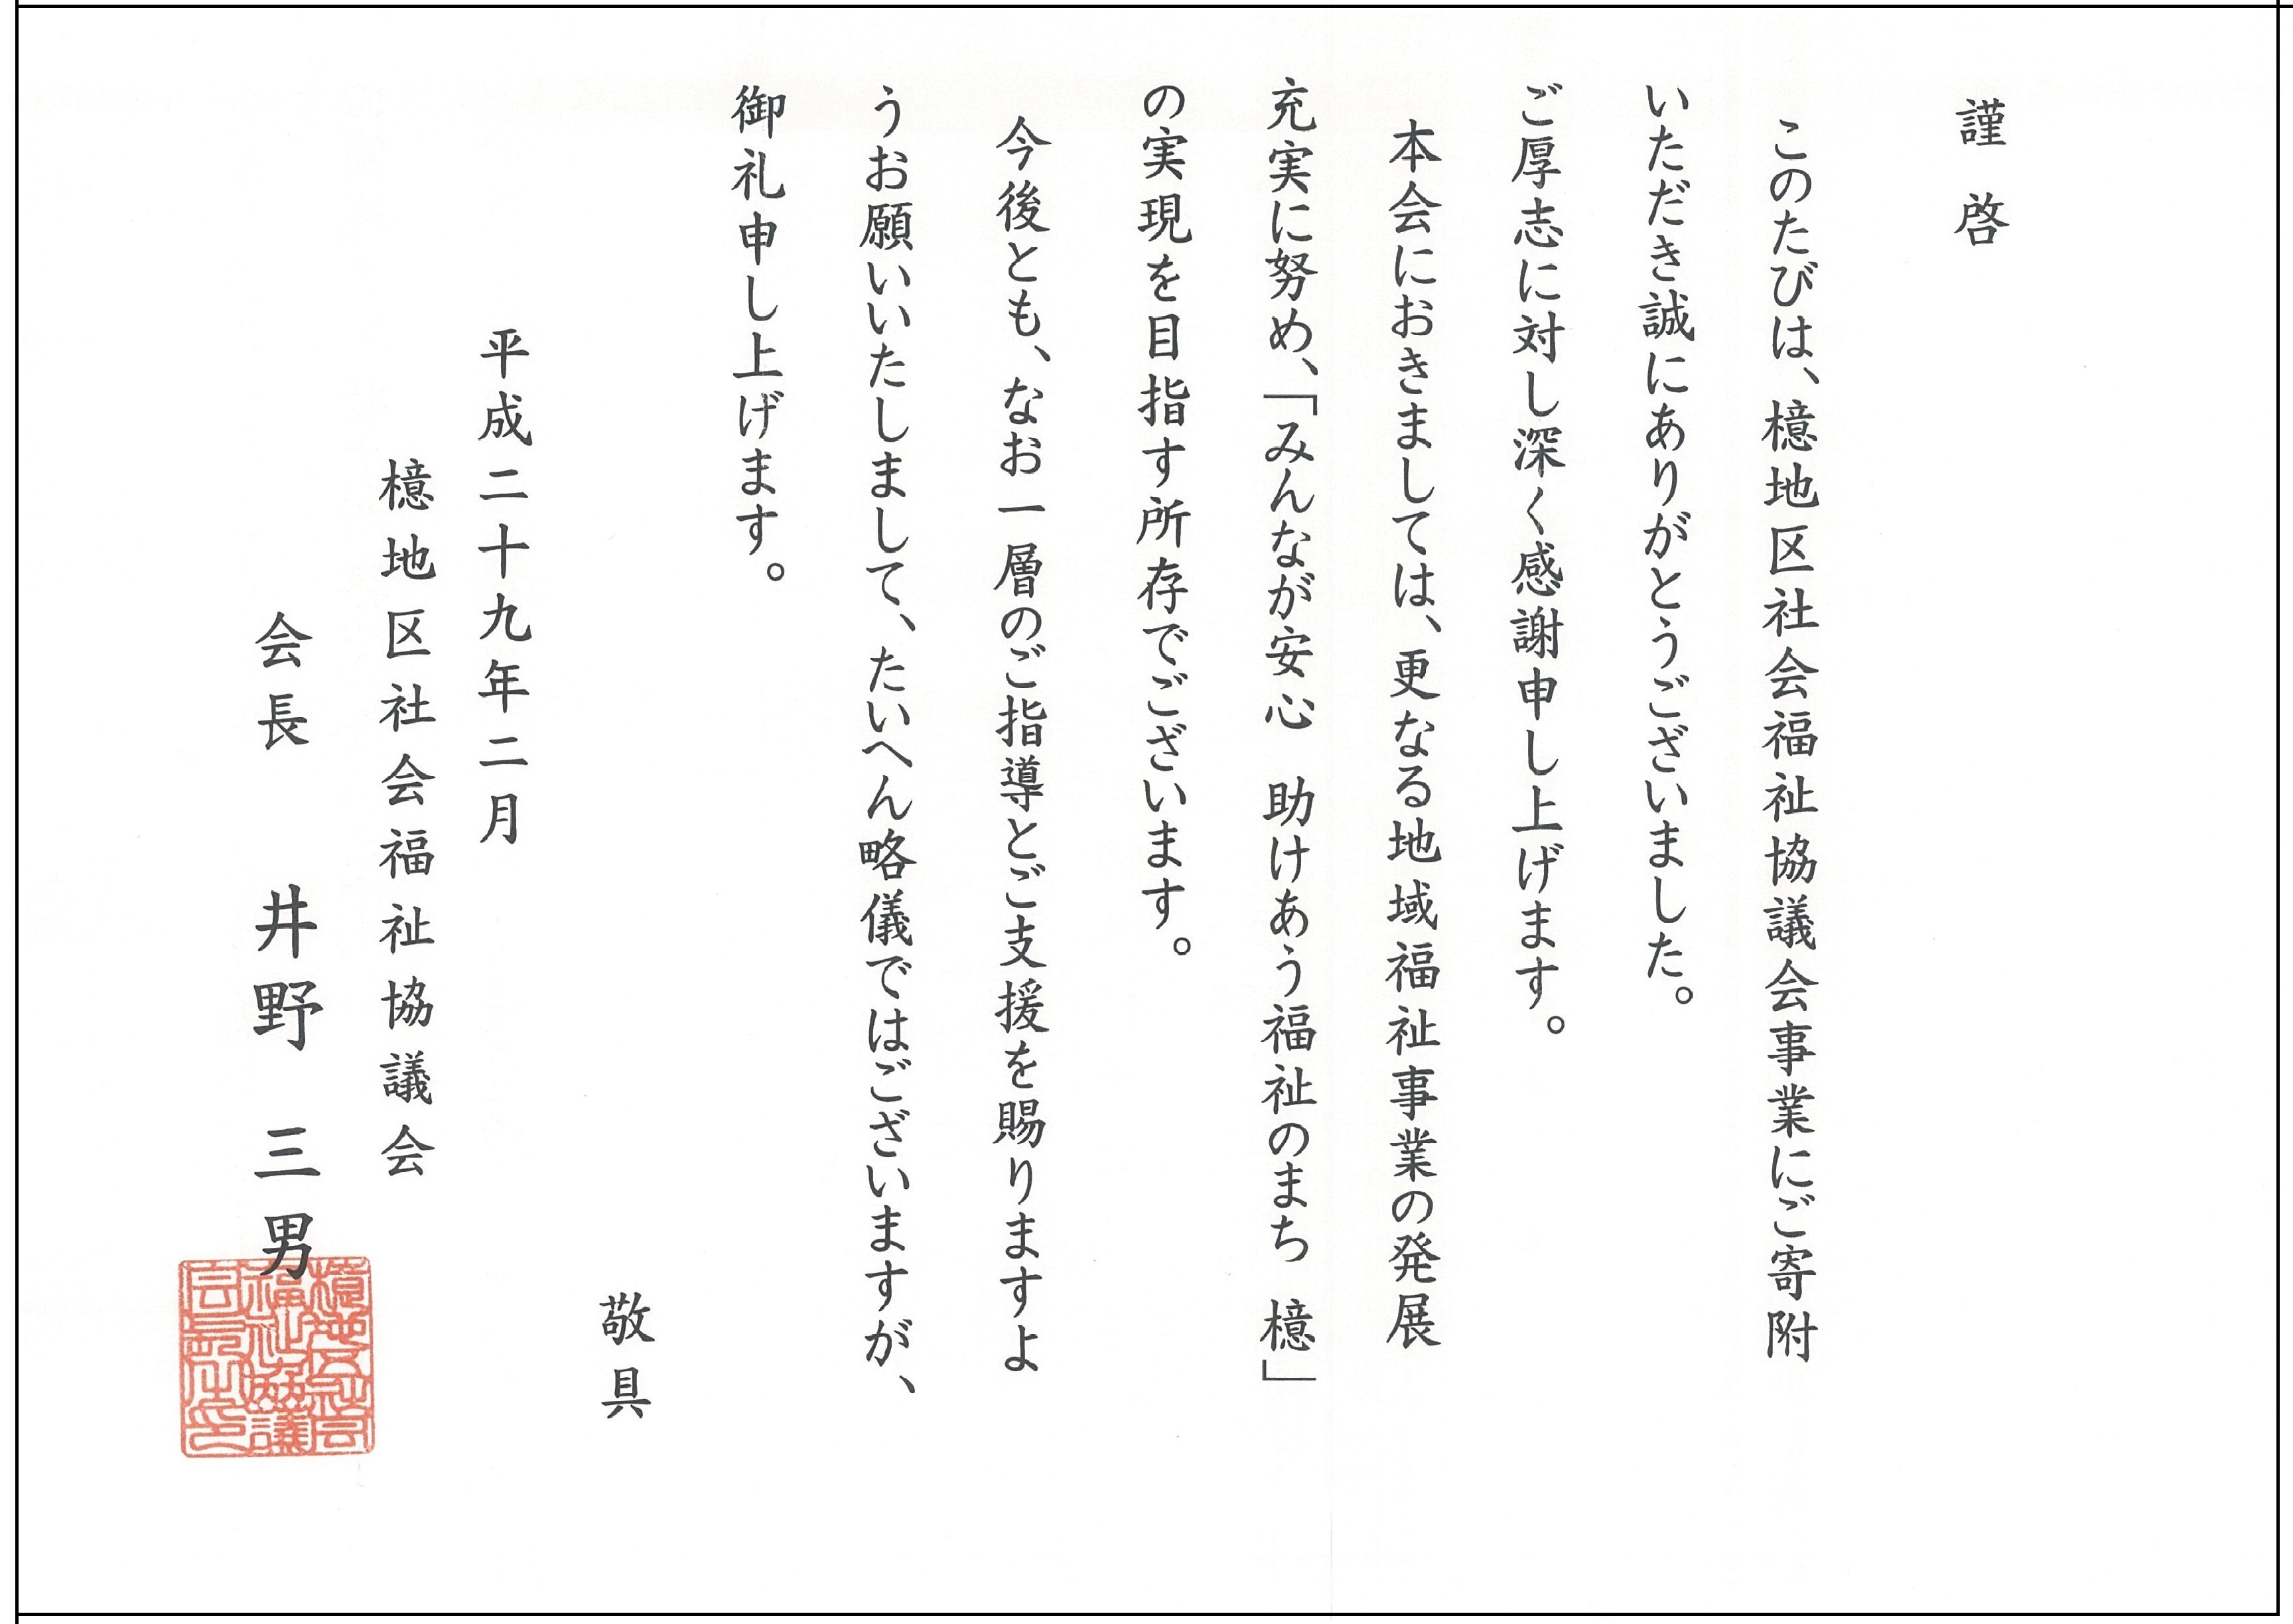 謹啓
このたびは、檍地区社会福祉協議会事業にご寄附
いただき誠にありがとうございました。
ご厚志に対し深く感謝申し上げます。
本会におきましては、更なる地域福祉事業の発展
充実に努め、「みんなが安心　助けあう福祉のまち　檍」
の実現を目指す所存でございます。
今後とも、なお一層のご指導とご支援を賜りますよ
うお願いいたしまして、たいへん略儀ではございますが、
御礼申し上げます。
敬具
平成二十九年二月
檍地区社会福祉協議会
会長　井野　三男
檍地区社会
福祉協議
会長之印